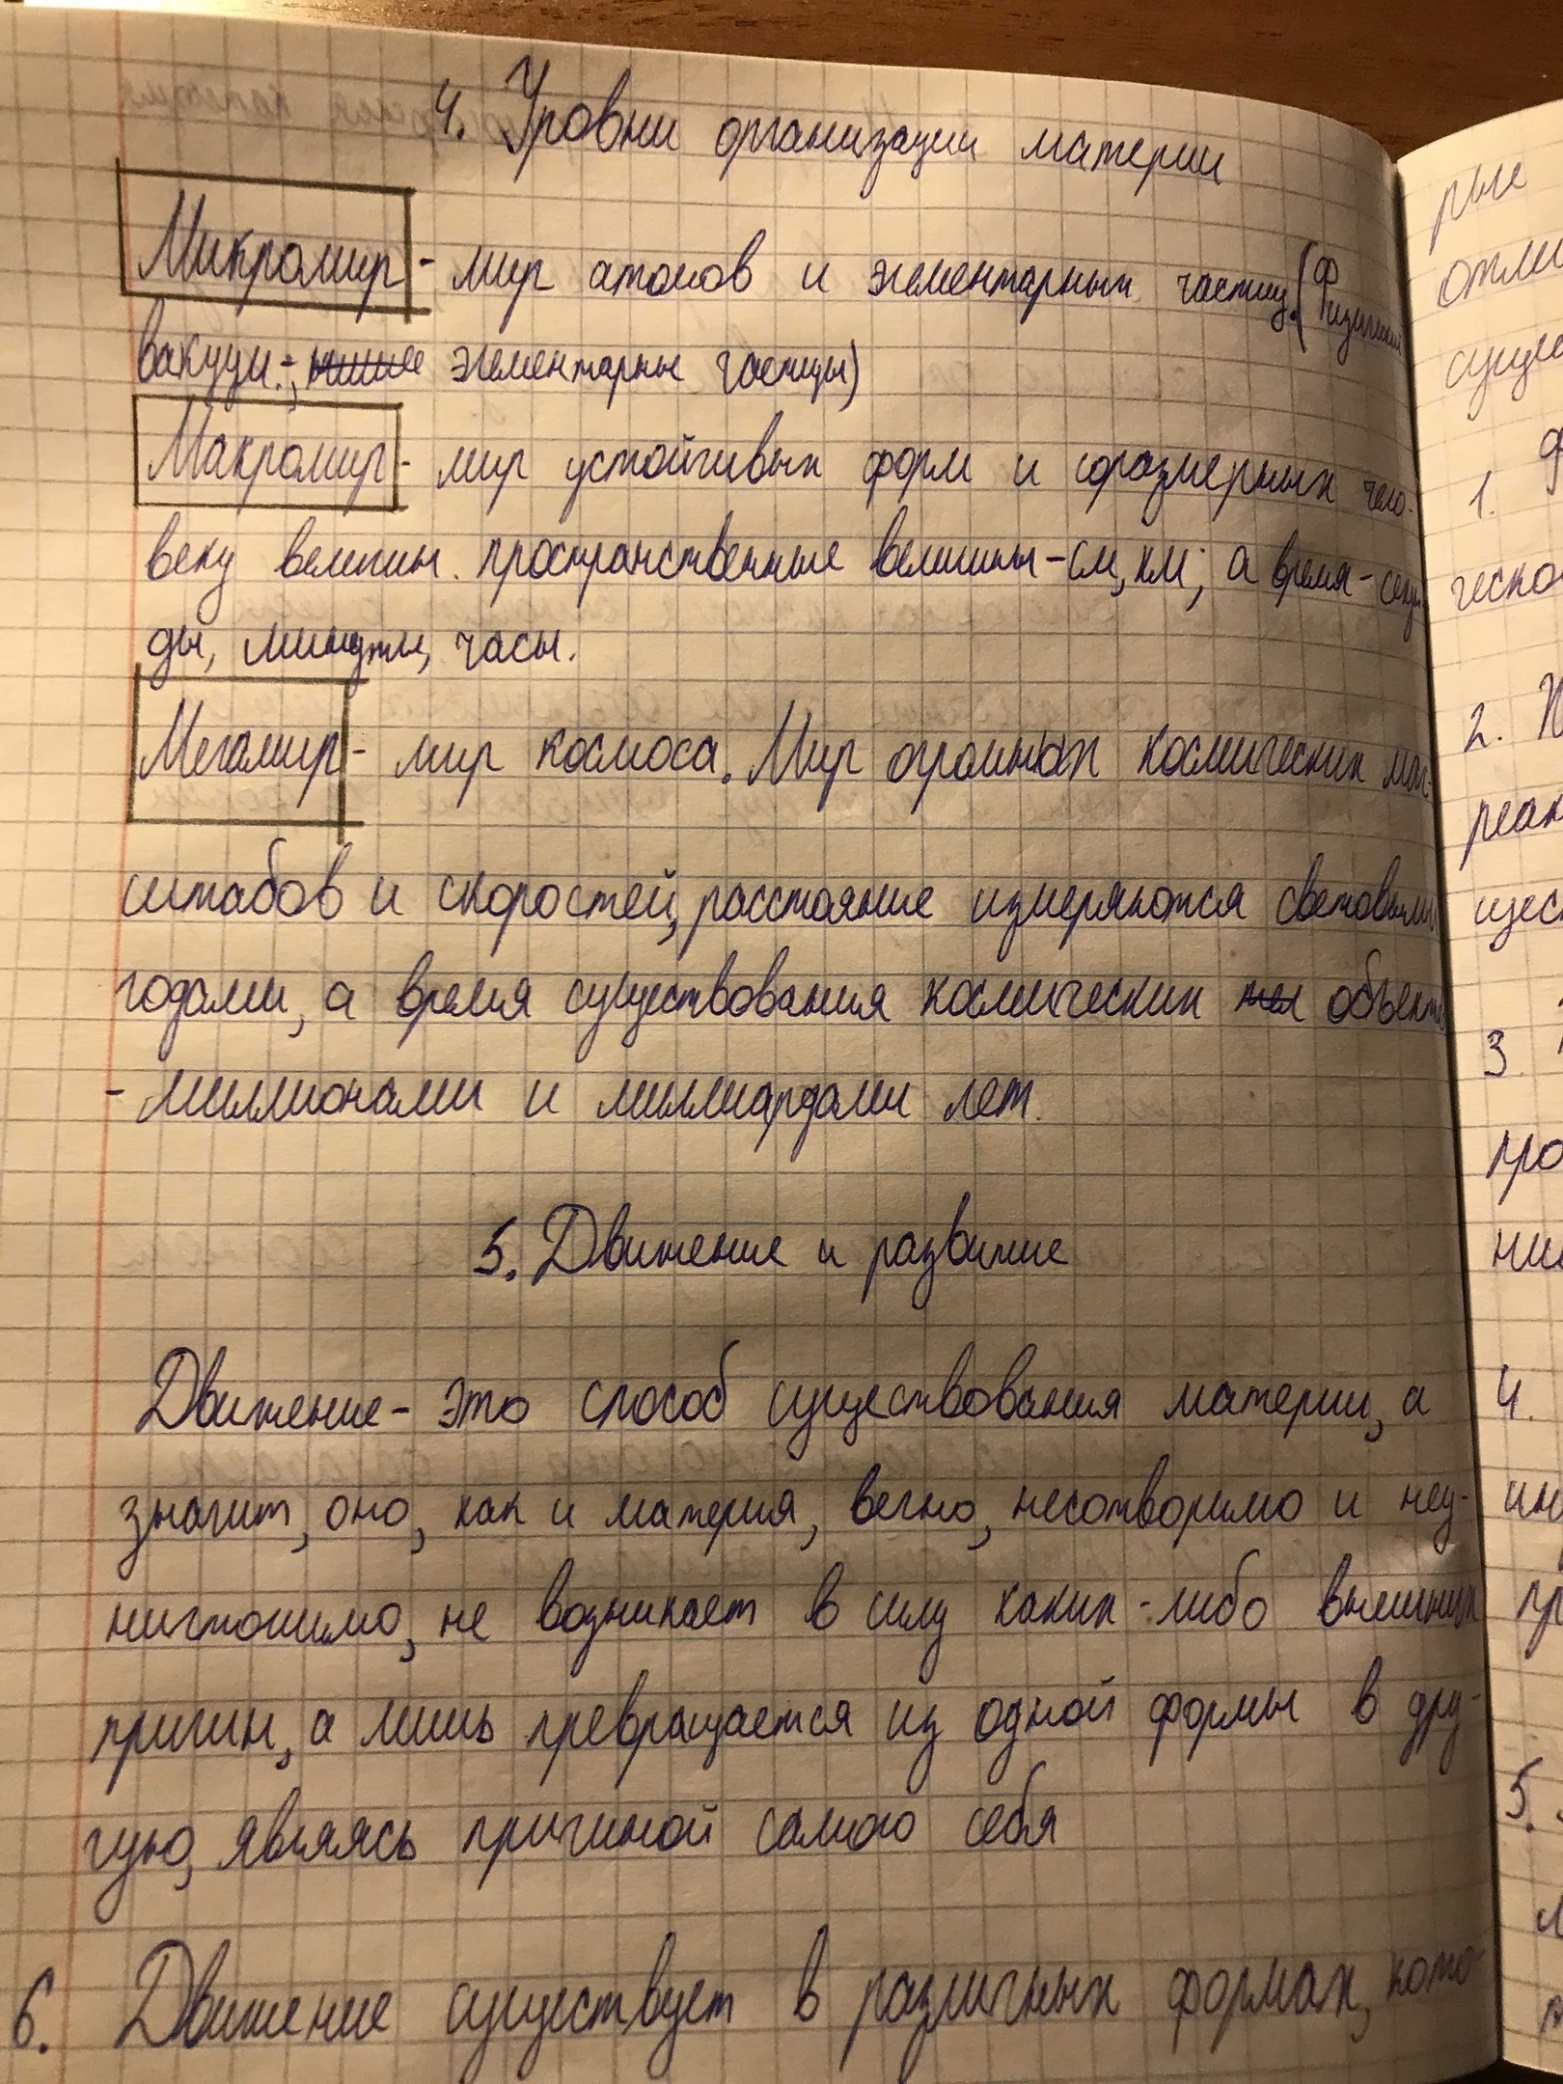 4. Уровни организации материи
Микромир - мир атомов и элементарных частиц. (Физический
вакуум -, элементарные частицы)
Макромир - мир устойчивых форм и соразмерных чело-
веку величин. пространственные величины - см, км; а время - секун
ды, минуты, часы.
Мегамир - мир космоса. Мир огромных космических мас-
штабов и скоростей, расстояние измеряются световыми
годами, а время существования космических тел объектов
- миллионами и миллиардами лет.
5. Движение и развитие
Движение - это способ существования материи, а
значит, оно, как и материя, вечно, несотворимо и неу-
ничтожимо, не возникает в силу каких-либо внешних
причин, а лишь превращается из одной формы в дру-
гую, являясь причиной самого себя
6. Движение существует в различных формах, кото
рые
отли
суще
1. Ф
ческо
2.
реак
щест
3
про
ни
4.
ин
пр
5.